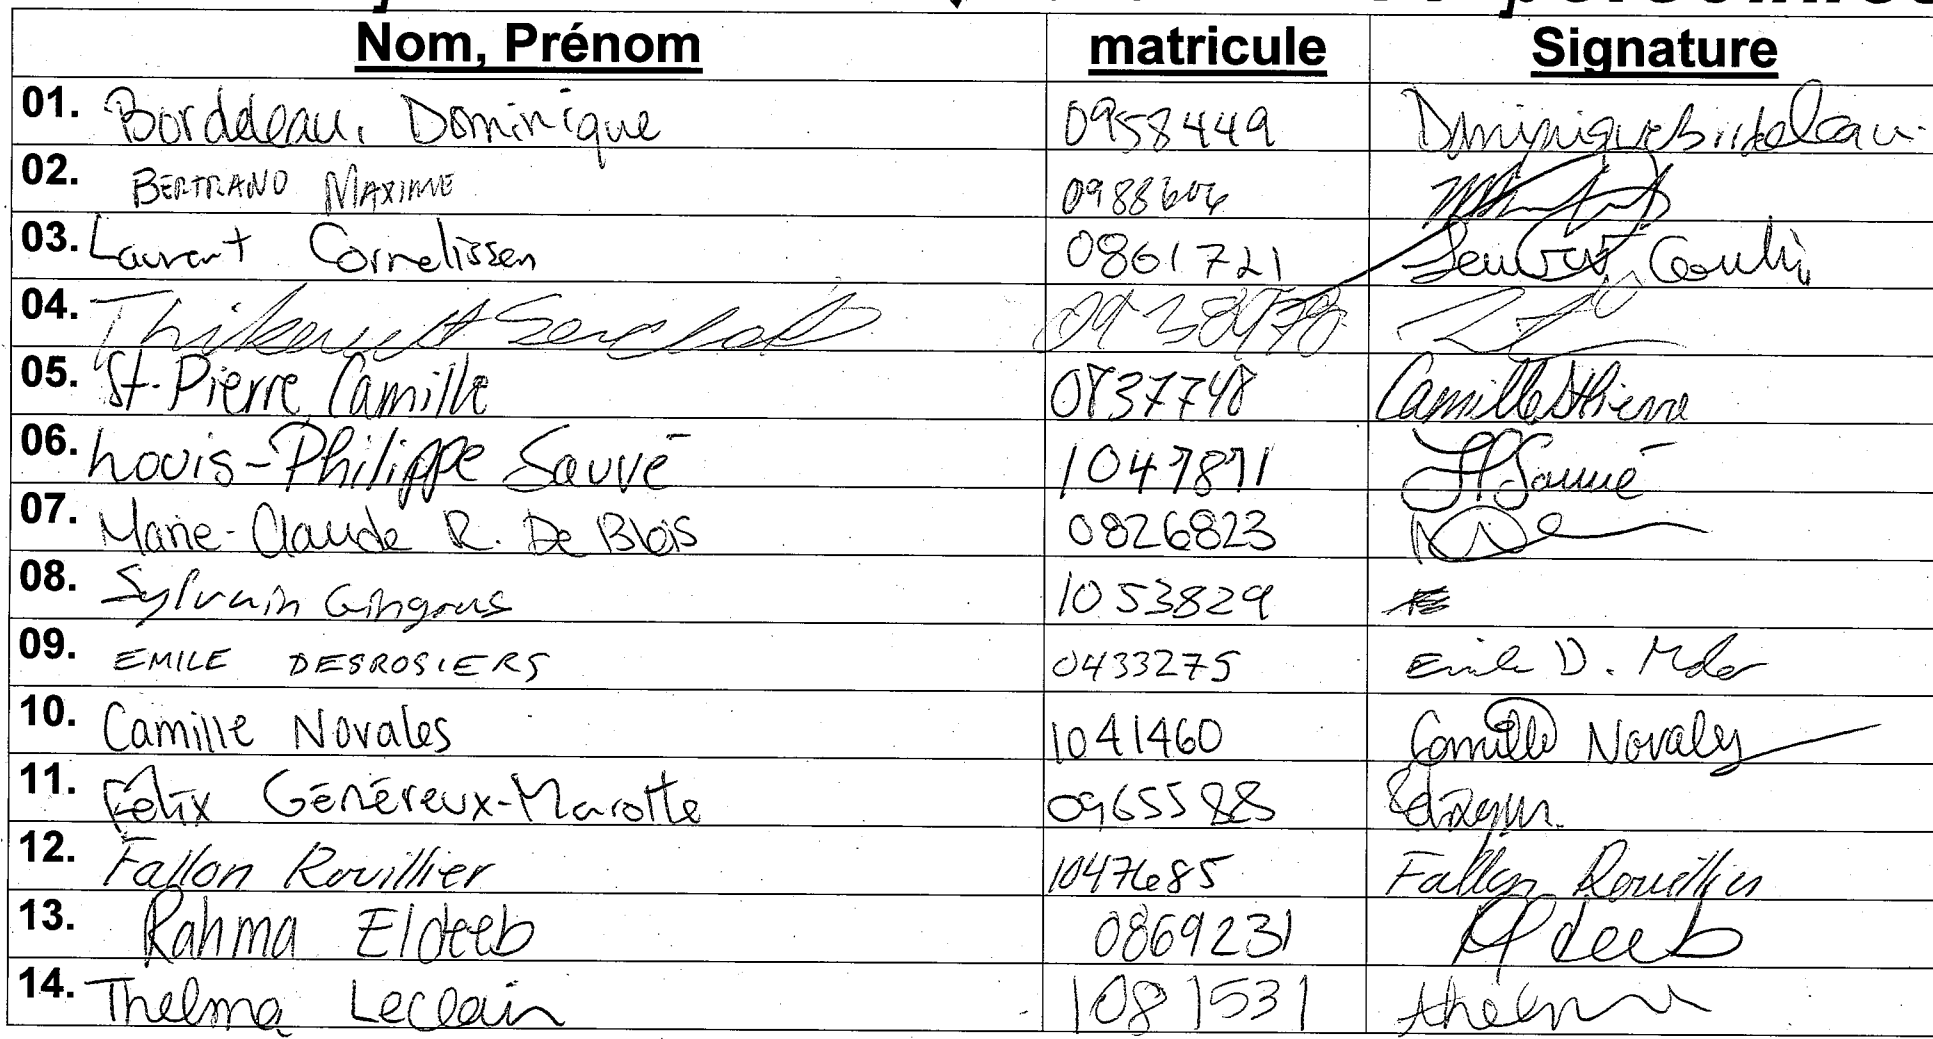 Nom, Prénom matricule Signature
01. Borddeleau, Dominique 0958449 Dominique Bordeleau
02. BERTRAND MAXIME 0988606
03. Laurent Cornelissen 0861721 Laurent
04. Thibeault
05. St-Pierre, Camille 0837748 Camille St-Pierre
06. Louis-Philippe Sauvé 1047871 LPSauvé
07. Marie-Claude R. De Blois 0826823
08. Sylvain Gingras 1053829
09. EMILE DESROSIERS 0433275 Emile D.
10. Camille Novales 1041460 Camille Novales
11. Félix Généreux-Marotte 0965588
12. Fallon Rouillier 1047685 Fallon Rouillier
13. Rahma Eldeeb 0869231 Eldeeb
14. Thelma Leclair 1081531 thelma